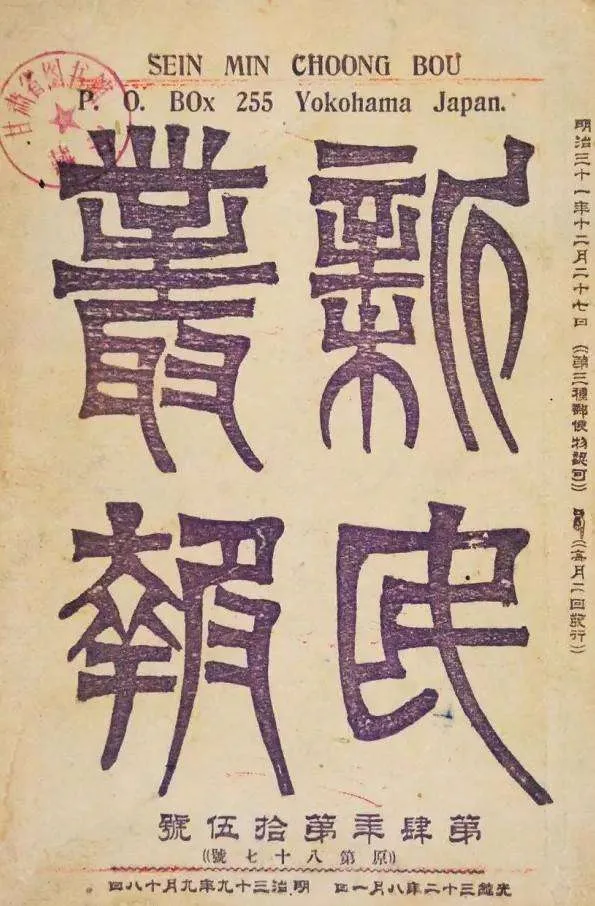 SEIN MIN CHOONG BOU
P. O. BOx 255 Yokohama Japan.
甘肃省图书
明治三十一年十二月二十七日 ((第三種郵便物認可)) ((每月二回發行))
新民
叢報
第肆年第拾伍號
((原第八十七號))
光緒三十二年八月一日 明治三十九年九月十八日